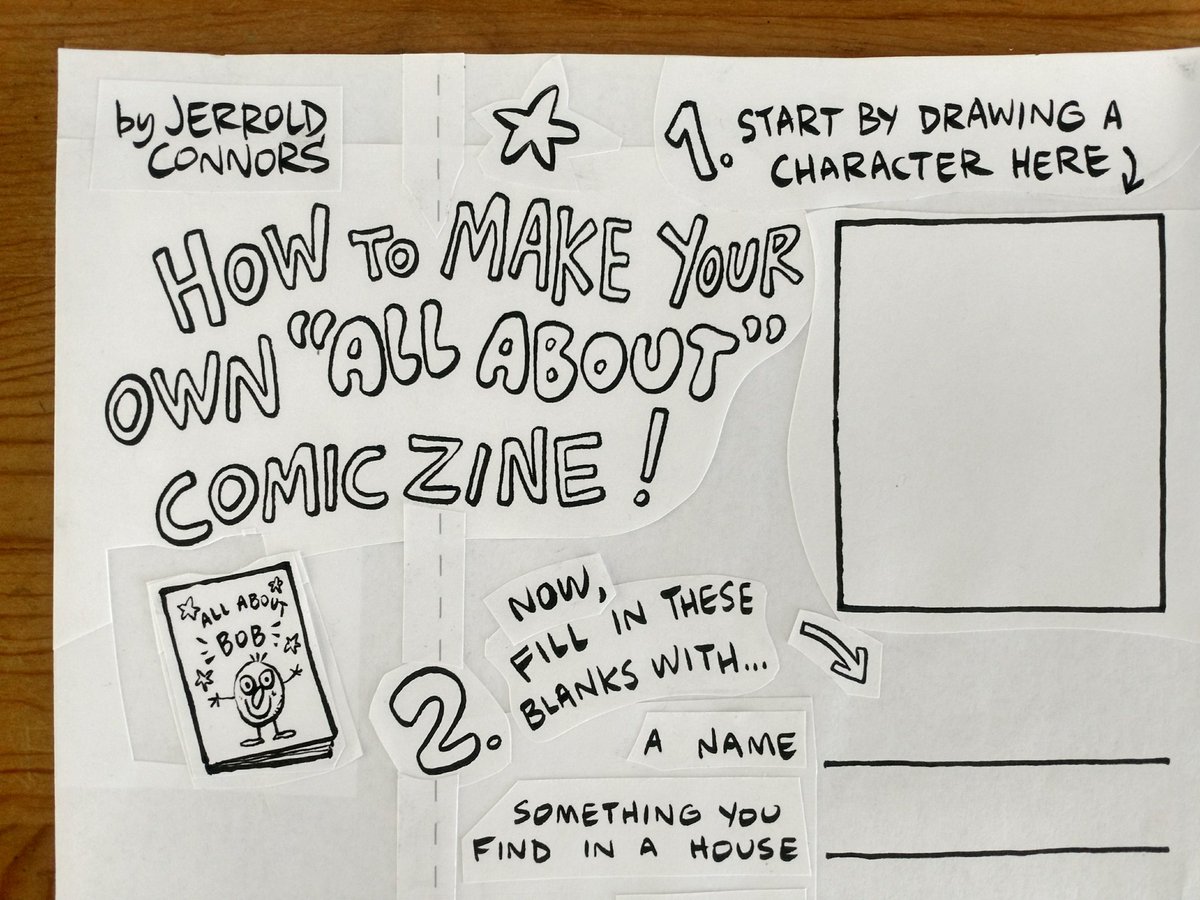 by JERROLD
CONNORS
HOW TO MAKE YOUR
OWN "ALL ABOUT"
COMIC ZINE!
ALL ABOUT
BOB
1. START BY DRAWING A
CHARACTER HERE
2. NOW,
FILL IN THESE
BLANKS WITH...
A NAME
SOMETHING YOU
FIND IN A HOUSE